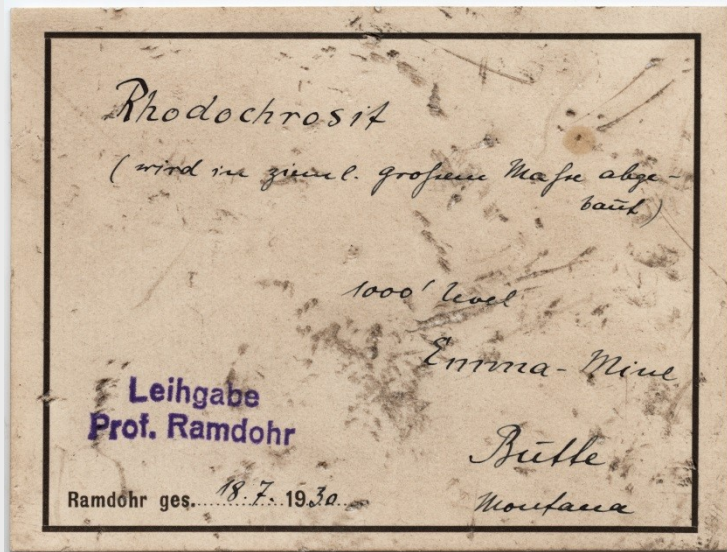 Rhodochrosit
(wird in zieml. großem Maße abge-
baut)
1000' level
Emma-Mine
Butte
Montana
Leihgabe
Prof. Ramdohr
Ramdohr ges. 18.7.1930